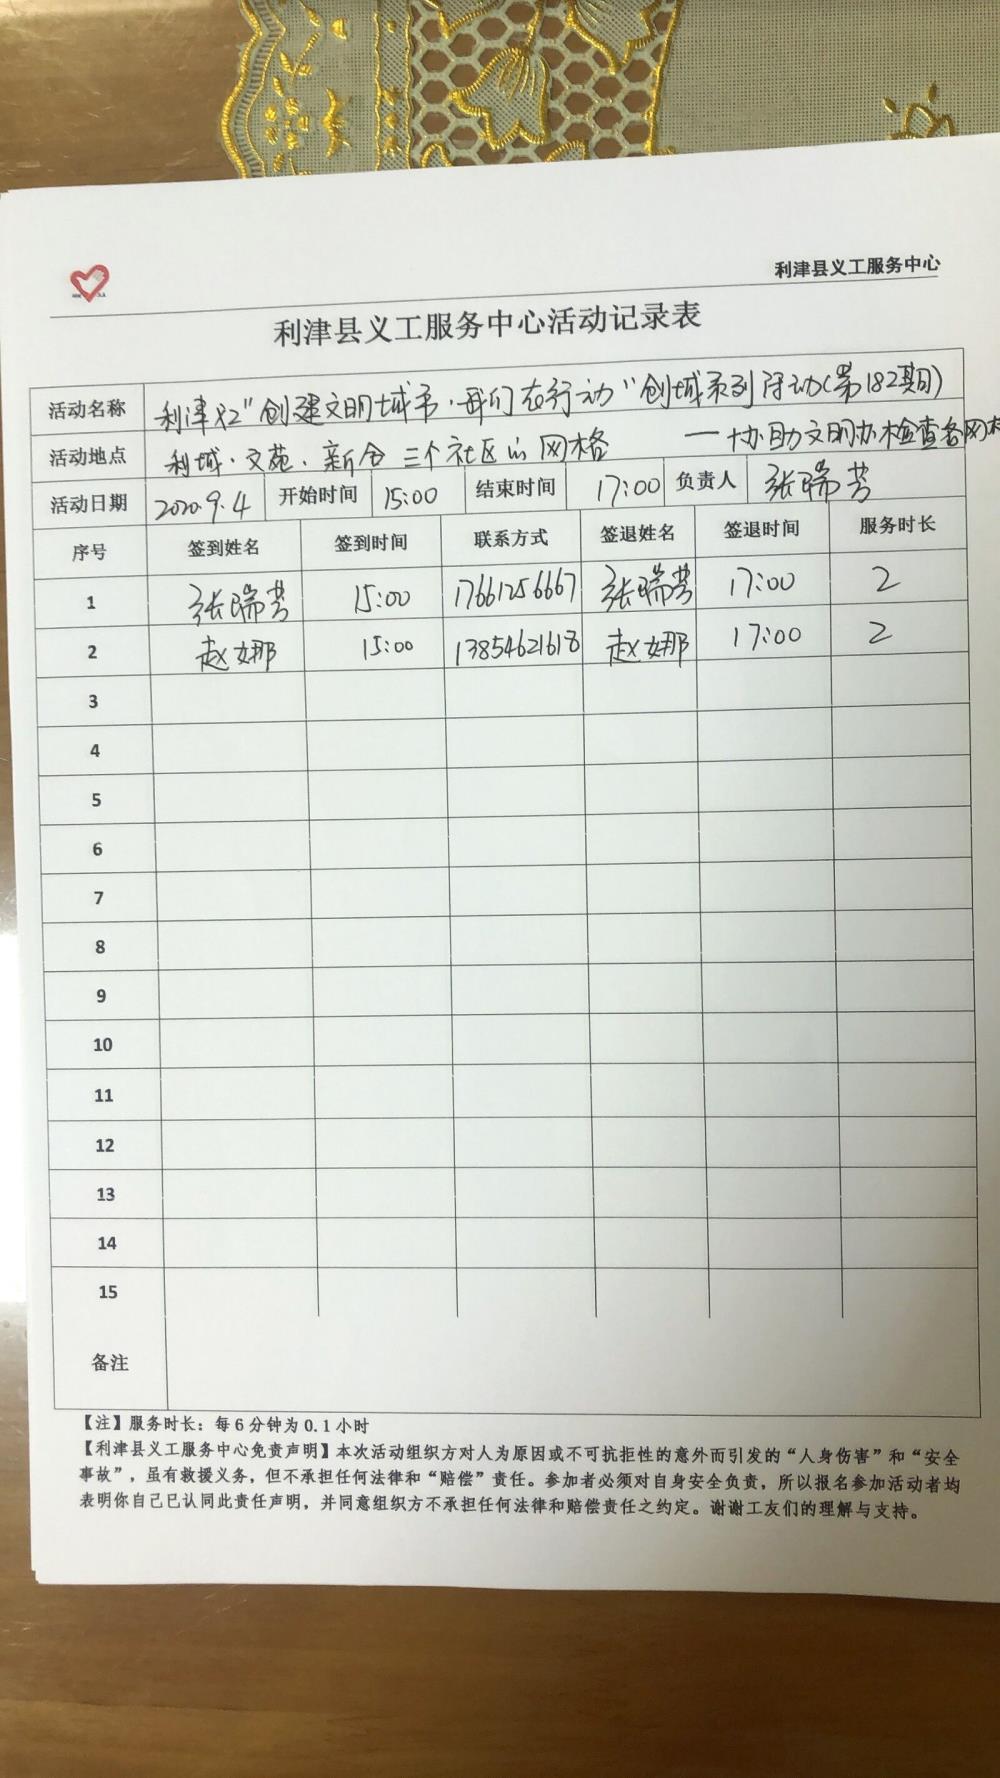 利津县义工服务中心
利津县义工服务中心活动记录表
活动名称 利津义工"创建文明城市·我们在行动"创城系列活动(第182期)
——协助文明办检查各网格
活动地点 利城·文苑·新合三个社区的网格
活动日期 2020.9.4 开始时间 15:00 结束时间 17:00 负责人 张瑞芳
序号 签到姓名 签到时间 联系方式 签退姓名 签退时间 服务时长
1 张瑞芳 15:00 17661256667 张瑞芳 17:00 2
2 赵娜 15:00 13854621618 赵娜 17:00 2
3
4
5
6
7
8
9
10
11
12
13
14
15
备注
【注】服务时长：每6分钟为0.1小时
【利津县义工服务中心免责声明】本次活动组织方对人为原因或不可抗拒性的意外而引发的“人身伤害”和“安全
事故”，虽有救援义务，但不承担任何法律和“赔偿”责任。参加者必须对自身安全负责，所以报名参加活动者均
表明你自己已认同此责任声明，并同意组织方不承担任何法律和赔偿责任之约定。谢谢工友们的理解与支持。